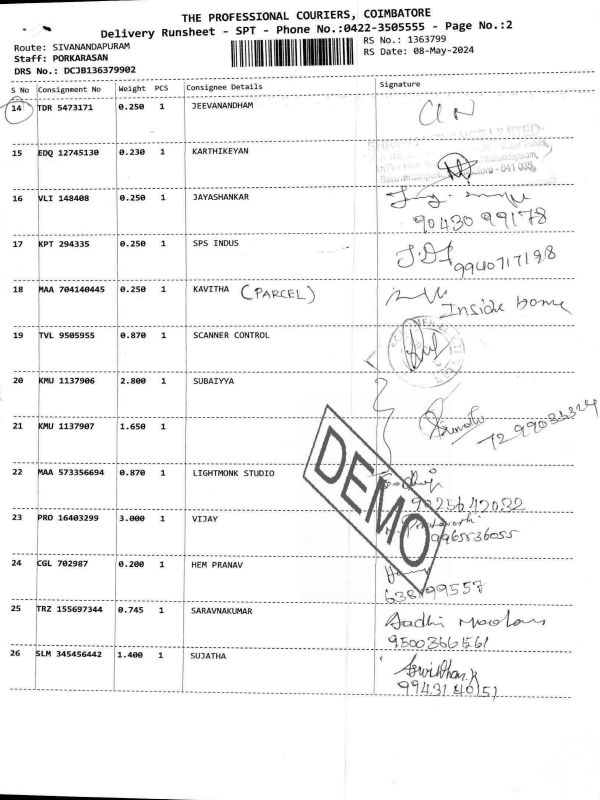 THE PROFESSIONAL COURIERS, COIMBATORE
Delivery Runsheet - SPT - Phone No.:0422-3505555 - Page No.:2
Route: SIVANANDAPURAM RS No.: 1363799
Staff: PORKARASAN RS Date: 08-May-2024
DRS No.: DCJB136379902
S No Consignment No Weight PCS Consignee Details Signature
14 TDR 5473171 0.250 1 JEEVANANDHAM
15 EDQ 12745130 0.230 1 KARTHIKEYAN
641 035
16 VLI 148408 0.250 1 JAYASHANKAR
90430 99178
17 KPT 294335 0.250 1 SPS INDUS
9940717198
18 MAA 704140445 0.250 1 KAVITHA (PARCEL)
Inside home
19 TVL 9505955 0.870 1 SCANNER CONTROL
20 KMU 1137906 2.800 1 SUBAIYYA
21 KMU 1137907 1.650 1
22 MAA 573356694 0.870 1 LIGHTMONK STUDIO
DEMO
23 PRO 16403299 3.000 1 VIJAY
9965536055
24 CGL 702987 0.200 1 HEM PRANAV
25 TRZ 155697344 0.745 1 SARAVNAKUMAR
9500366561
26 SLM 345456442 1.400 1 SUJATHA
9943140151